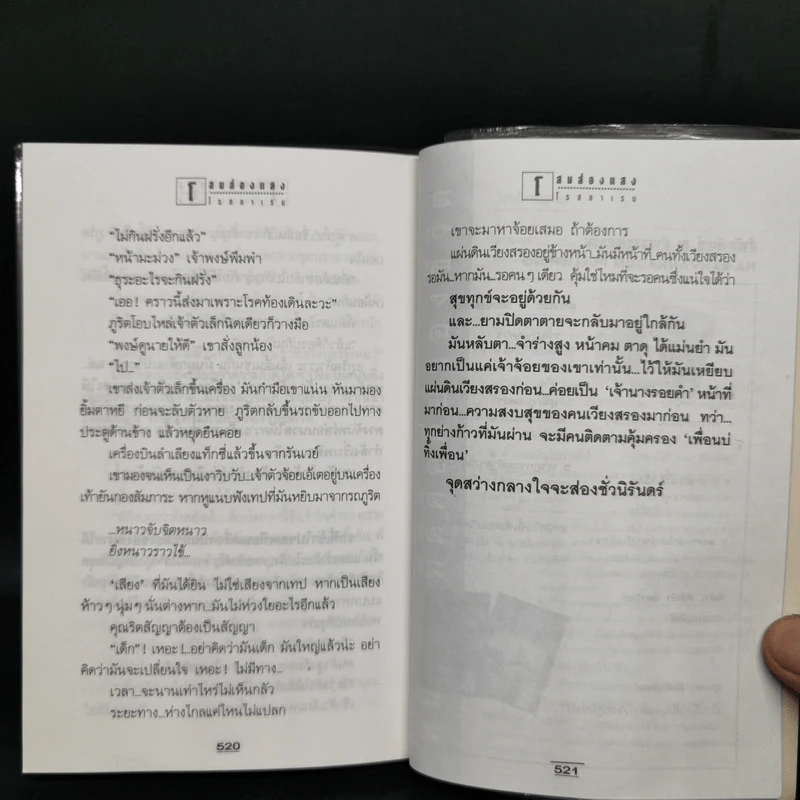 โ
สนส่องแสง
โรสลาเรน
“ไม่กินฝรั่งอีกแล้ว”
“หน้ามะม่วง” เจ้าพงษ์พึมพำ
“ธุระอะไรจะกินฝรั่ง”
“เออ! คราวนี้ส่งมาเพราะโรคท้องเดินละวะ”
ภูริตโอบไหล่เจ้าตัวเล็กนิดเดียวก็วางมือ
“พงษ์ดูนายให้ดี” เขาสั่งลูกน้อง
“ไป...”
เขาส่งเจ้าตัวเล็กขึ้นเครื่อง มันกำมือเขาแน่น หันมามอง
ยิ้มตาหยี ก่อนจะลับตัวหาย ภูริตกลับขึ้นรถขับออกไปทาง
ประตูด้านข้าง แล้วหยุดยืนคอย
เครื่องบินลำเลียงแท็กซี่แล้วขึ้นจากรันเวย์
เขามองจนเห็นเป็นเงาวิบวับ...เจ้าตัวจ้อยเอ้เตอยู่บนเครื่อง
เท้ายันกองสัมภาระ หากหูแนบฟังเทปที่มันหยิบมาจากรถภูริต
...หนาวจับจิตหนาว
ยิ่งหนาวราวไข้...
‘เสียง’ ที่มันได้ยิน ไม่ใช่เสียงจากเทป หากเป็นเสียง
ห้าวๆ นุ่มๆ นั่นต่างหาก...มันไม่ห่วงใยอะไรอีกแล้ว
คุณริตสัญญาต้องเป็นสัญญา
“เด็ก”! เหอะ!...อย่าคิดว่ามันเด็ก มันใหญ่แล้วน่ะ อย่า
คิดว่ามันจะเปลี่ยนใจ เหอะ! ไม่มีทาง...
เวลา...จะนานเท่าไหร่ไม่เห็นกลัว
ระยะทาง...ห่างไกลแค่ไหนไม่แปลก
520
โ
สนส่องแสง
โรสลาเรน
เขาจะมาหาจ้อยเสมอ ถ้าต้องการ
แผ่นดินเวียงสรองอยู่ข้างหน้า...มันมีหน้าที่...คนทั้งเวียงสรอง
รอมัน...หากมัน...รอคนๆ เดียว คุ้มใช่ไหมที่จะรอคนซึ่งแน่ใจได้ว่า
สุขทุกข์จะอยู่ด้วยกัน
และ...ยามปิดตาตายจะกลับมาอยู่ใกล้กัน
มันหลับตา...จำร่างสูง หน้าคม ตาดุ ได้แม่นยำ มัน
อยากเป็นแค่เจ้าจ้อยของเขาเท่านั้น...ไว้ให้มันเหยียบ
แผ่นดินเวียงสรองก่อน...ค่อยเป็น ‘เจ้านางรอยคำ’ หน้าที่
มาก่อน...ความสงบสุขของคนเวียงสรองมาก่อน ทว่า...
ทุกย่างก้าวที่มันผ่าน จะมีคนติดตามคุ้มครอง ‘เพื่อนบ่
ทิ้งเพื่อน’
จุดสว่างกลางใจจะส่องชั่วนิรันดร์
521